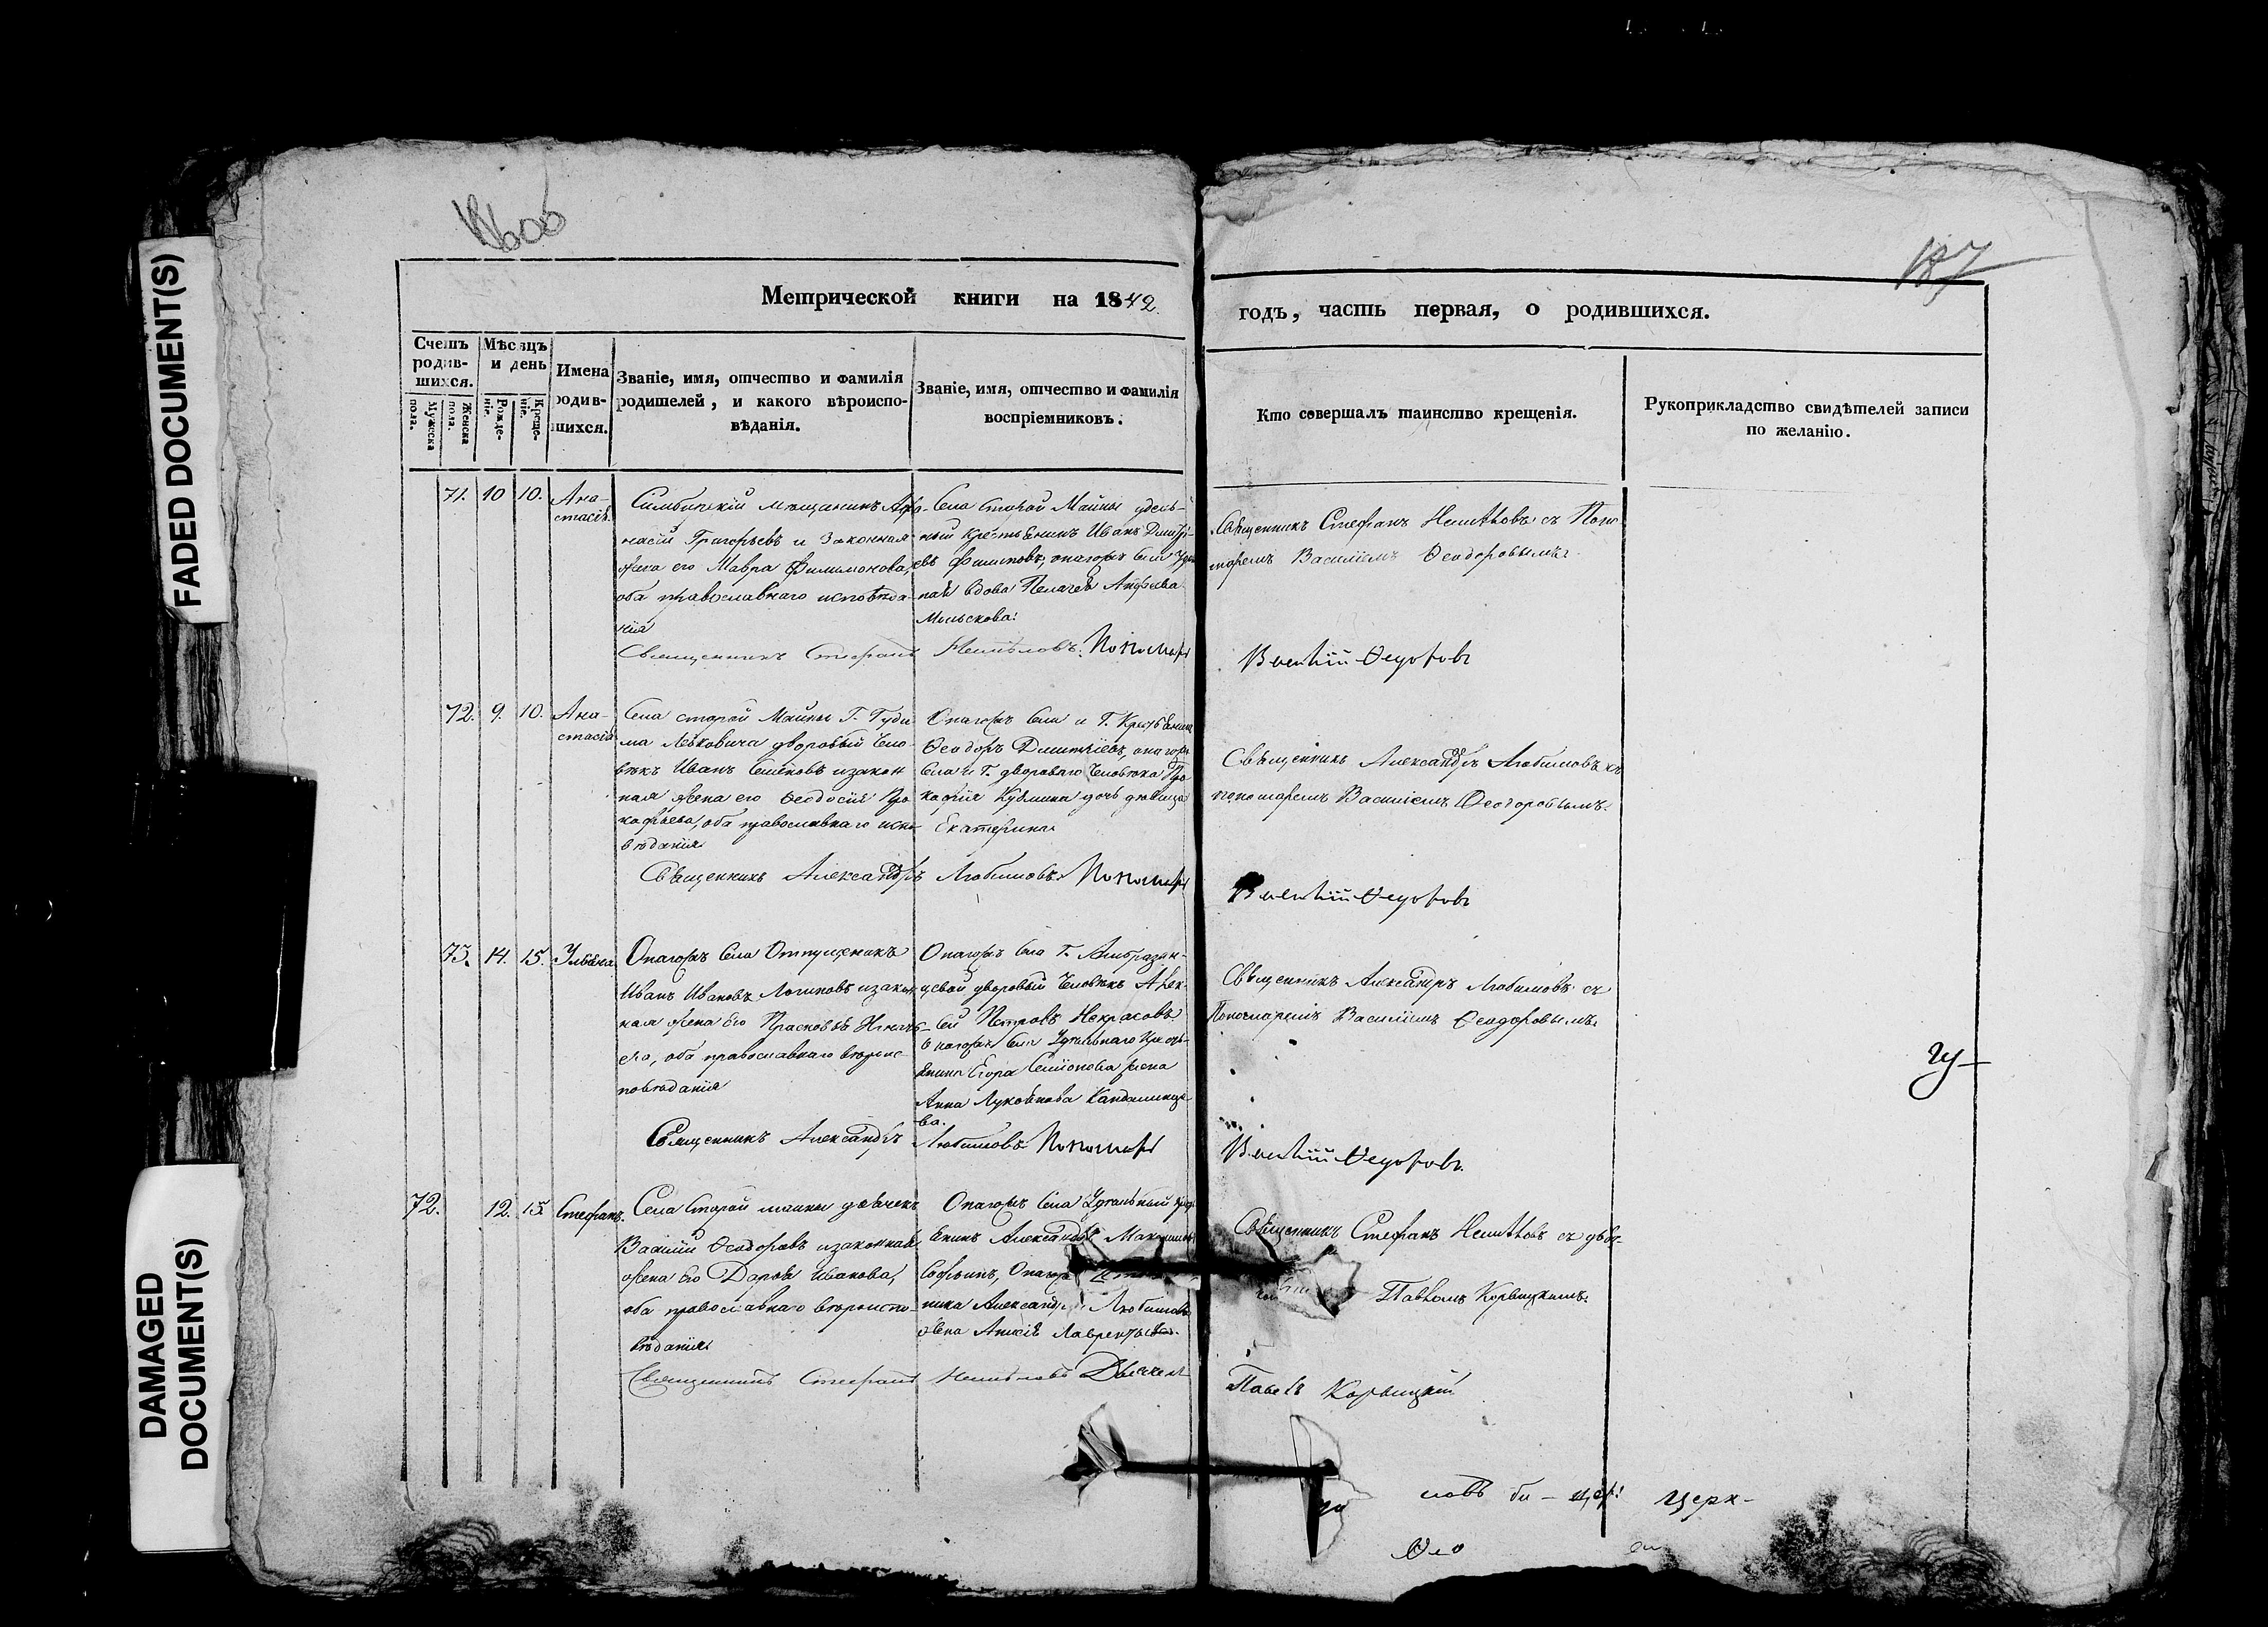 FADED DOCUMENT(S)
DAMAGED
DOCUMENT(S)
187
Метрической книги на 1842
годъ, часть первая, о родившихся.
Счетъ родив-шихся.
Мужеска пола.
Женска пола.
Мѣсяцъ и день
Рожде-ніе.
Креще-ніе.
Имена родив-шихся.
Званіе, имя, отчество и фамилія
родителей, и какого вѣроиспо-
вѣданія.
Званіе, имя, отчество и фамилія
воспріемниковъ.
Кто совершалъ таинство крещенія.
Рукоприкладство свидѣтелей записи
по желанію.
71. 10 10. Ана-
стасія.
Симбирскій мѣщанинъ Афа-
насій Григорьевъ и законная
жена его Мавра Филимонова,
оба православнаго исповѣда-
нія
Села Старой Майны удѣль-
ный крестьянинъ Иванъ Дмитрі-
евъ Филиповъ, онагожъ села
вдова Пелагея Андреева
Священникъ Стефанъ Немѣловъ съ Поно-
маремъ Василіемъ Ѳеодоровымъ.
Священникъ Стефанъ Немѣловъ. Пономарь
Василій Ѳедоровъ
72. 9. 10. Ана-
стасія
Села старой Майны Г.
дворовый чело-
вѣкъ Иванъ Семеновъ и закон
ная жена его Ѳеодосія Про
кофьева, оба православнаго испо
вѣданія
Онагожъ села и Г. Крестьянинъ
Ѳеодоръ Дмитріевъ, онагожъ
села и Г. двороваго человѣка Про
кофія Кузмина дочь дѣвица
Екатерина
Священникъ Александръ Любимовъ съ
пономаремъ Василіемъ Ѳеодоровымъ.
Священникъ Александръ Любимовъ. Пономарь
Василій Ѳедоровъ
73. 14. 15. Ульяна
Онагожъ села Отпущенникъ
Иванъ Ивановъ Логиновъ и закон
ная жена его Прасковья
оба православнаго вѣроис-
повѣданія
Онагожъ села Г.
дворовый человѣкъ Алек-
сѣй Петровъ Некрасовъ
Онагожъ села Удѣльнаго кресть-
янина Егора Семіонова жена
Анна
ва.
Священникъ Александръ Любимовъ съ
Пономаремъ Василіемъ Ѳеодоровымъ.
Священникъ Александръ Любимовъ Пономарь
Василій Ѳедоровъ.
72. 12. 15. Стефанъ.
Села Старой майны дьячекъ
Василій Ѳеодоровъ и законная
жена его Дарья Иванова,
оба православнаго вѣроиспо-
вѣданія
Онагожъ села Удѣльный крест
янинъ Александръ
Онагожъ
ника Александра Любимова
жена Анисія Лаврентьева.
Священникъ Стефанъ Немѣловъ съ дьяч-
Павломъ Корвицкимъ.
Священникъ Стефанъ Немѣловъ Дьячекъ
Павелъ Корвицкій
церк-